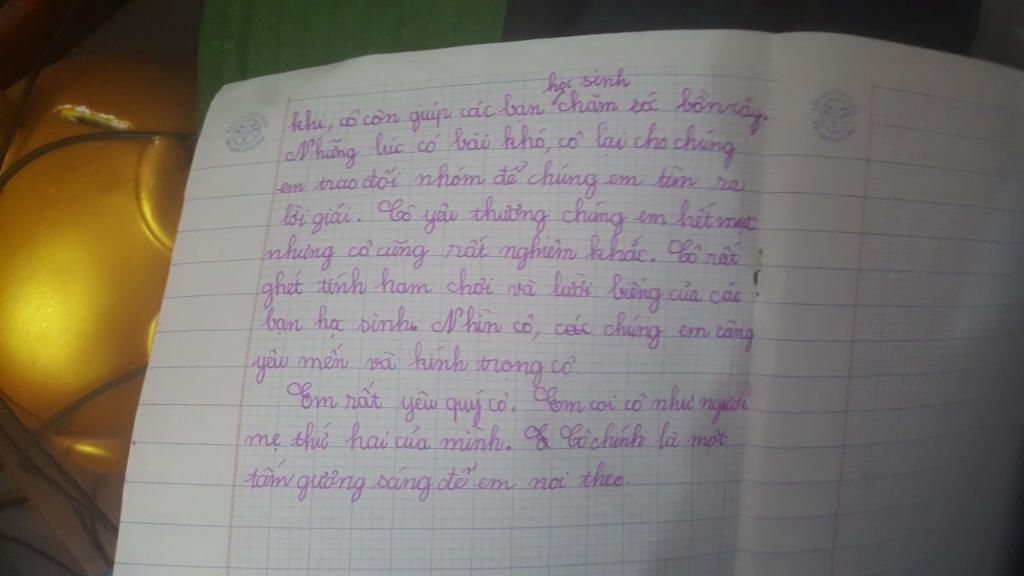 học sinh
khi, cô còn giúp các bạn chăm sóc bồn cây.
Những lúc có bài khó, cô lại cho chúng
em trao đổi nhóm để chúng em tìm ra
lời giải. Cô yêu thương chúng em hết mực
nhưng cô cũng rất nghiêm khắc. Cô rất
ghét tính ham chơi và lười biếng của các
bạn họ sinh. Nhìn cô, các chúng em càng
yêu mến và kính trọng cô.
Em rất yêu quý cô. Em coi cô như người
mẹ thứ hai của mình. Cô chính là một
tấm gưởng sáng để em noi theo.